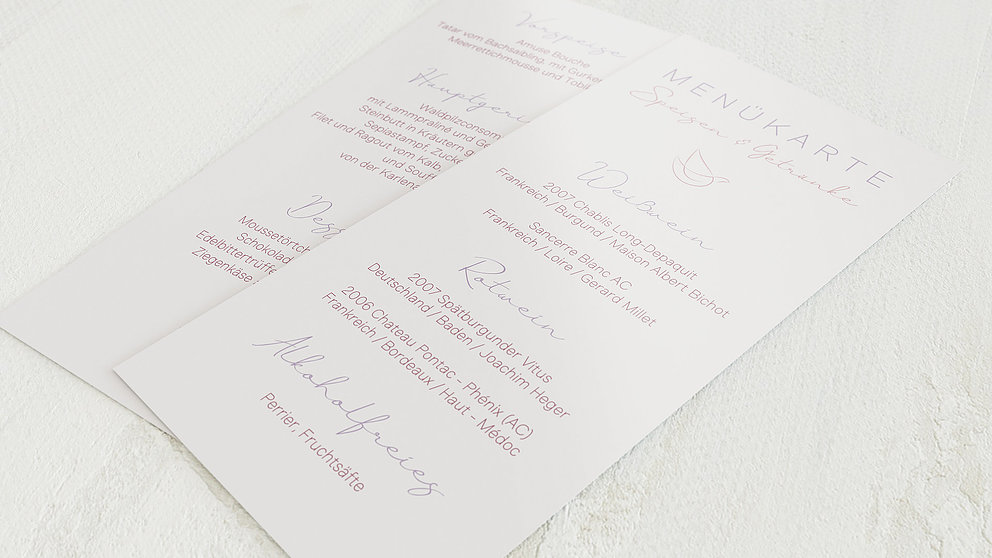 MENÜKARTE
Speisen & Getränke
Weißwein
2007 Chablis Long-Depaquit
Frankreich / Burgund / Maison Albert Bichot
Sancerre Blanc AC
Frankreich / Loire / Gerard Millet
Rotwein
2007 Spätburgunder Vitus
Deutschland / Baden / Joachim Heger
2006 Chateau Pontac - Phénix (AC)
Frankreich / Bordeaux / Haut - Médoc
Alkoholfreies
Perrier, Fruchtsäfte
Vorspeise
Amuse Bouche
Tatar vom Bachsaibling, mit Gurken
Meerrettichmousse und Tobi
Hauptgeri
Waldpilzconsom
mit Lammpraline und Ge
Steinbutt in Kräutern g
Sepiastampf, Zucke
Filet und Ragout vom Kalb,
und Souff
von der Karlena
Dess
Moussetörtch
Schokolad
Edelbittertrüffe
Ziegenkäse